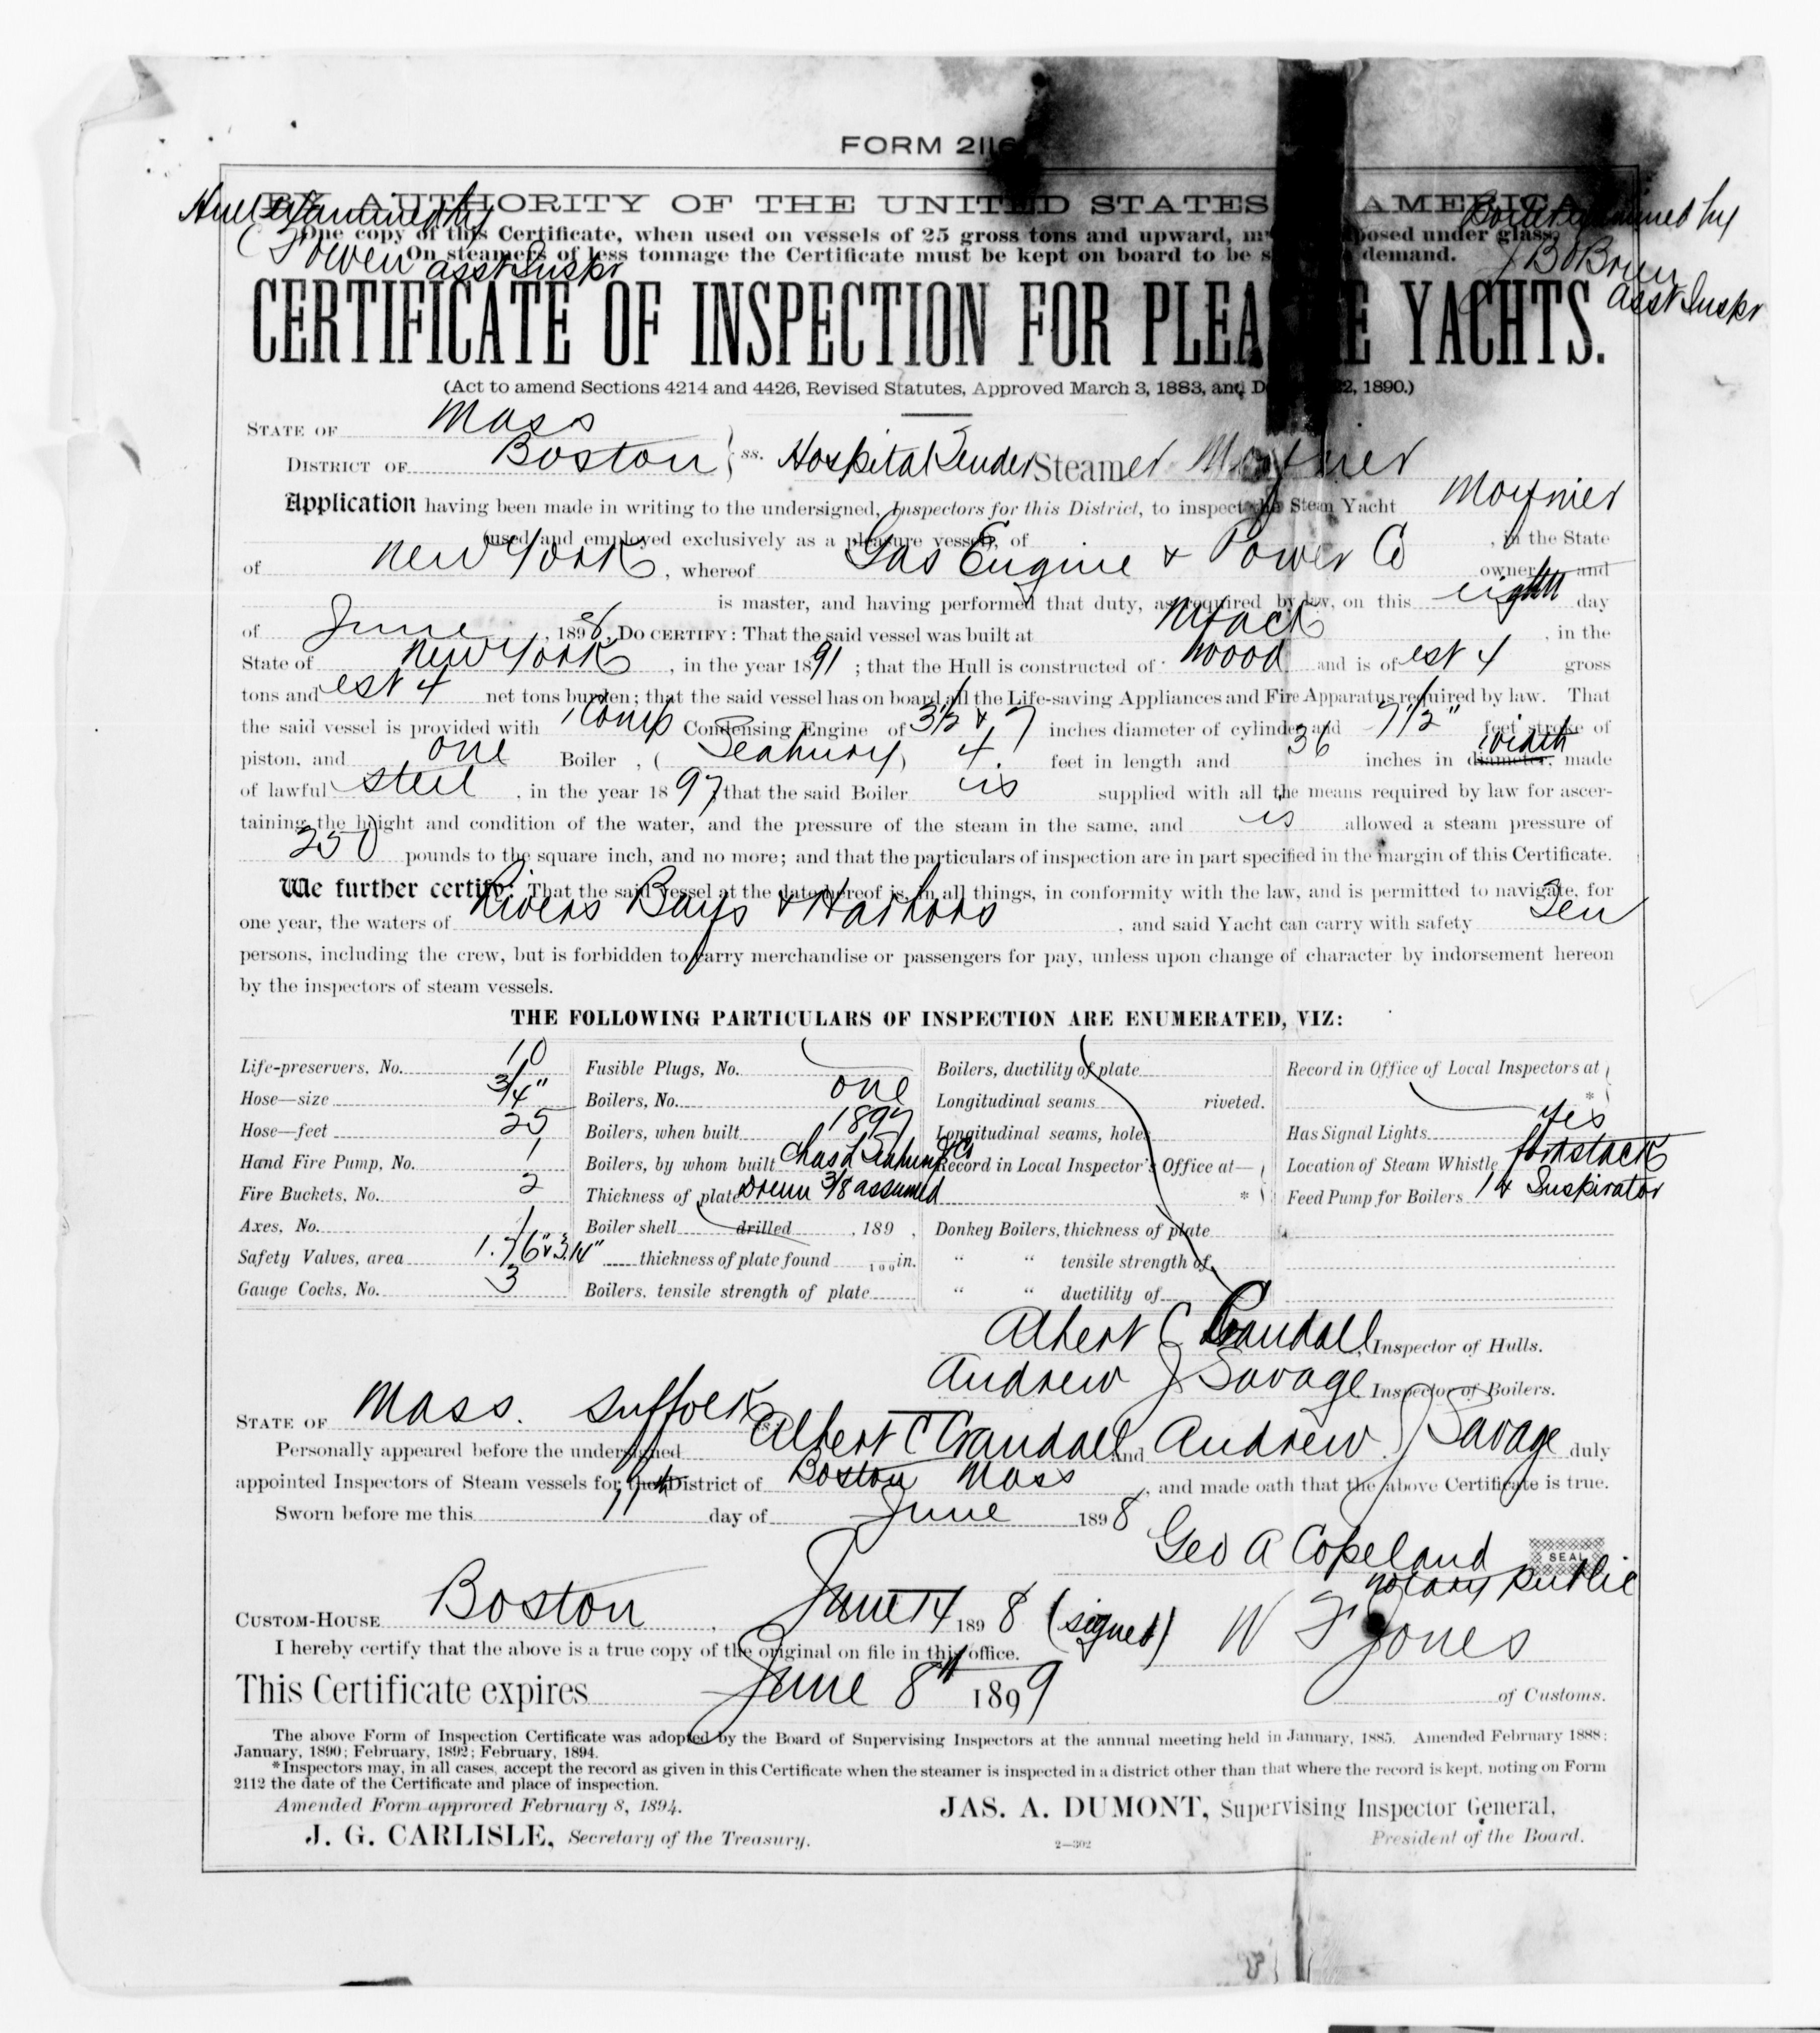 FORM 2116
BY AUTHORITY OF THE UNITED STATES AMERICA
Hull Examined by
Boiler examined by
One copy of this Certificate, when used on vessels of 25 gross tons and upward, posed under glass.
On steamers of less tonnage the Certificate must be kept on board to be demand.
asst Inspr
J B OBrien
asst Inspr
CERTIFICATE OF INSPECTION FOR PLEA E YACHTS.
(Act to amend Sections 4214 and 4426, Revised Statutes, Approved March 3, 1883, and D 22, 1890.)
STATE OF Mass
DISTRICT OF Boston } ss. Hospital Tender Steamer Moynier
Application having been made in writing to the undersigned, Inspectors for this District, to inspect the Steam Yacht Moynier
(used and employed exclusively as a pleasure vessel), of , in the State
of New York, whereof Gas Engine & Power Co owner and
is master, and having performed that duty, as required by law, on this eighth day
of June, 1898, DO CERTIFY: That the said vessel was built at Nyack , in the
State of New York, in the year 1891; that the Hull is constructed of wood and is of est 4 gross
tons and est 4 net tons burden; that the said vessel has on board all the Life-saving Appliances and Fire Apparatus required by law. That
the said vessel is provided with 1 Comp Condensing Engine of 3½ & 7 inches diameter of cylinder and 7½" feet stroke of
piston, and one Boiler , (Seabury) 4. feet in length and 36 inches in diameter, width made
of lawful steel , in the year 1897, that the said Boiler is supplied with all the means required by law for ascer-
taining the height and condition of the water, and the pressure of the steam in the same, and is allowed a steam pressure of
250 pounds to the square inch, and no more; and that the particulars of inspection are in part specified in the margin of this Certificate.
We further certify: That the said vessel at the date hereof is, in all things, in conformity with the law, and is permitted to navigate, for
one year, the waters of Rivers Bays & Harbors , and said Yacht can carry with safety Ten
persons, including the crew, but is forbidden to carry merchandise or passengers for pay, unless upon change of character by indorsement hereon
by the inspectors of steam vessels.
THE FOLLOWING PARTICULARS OF INSPECTION ARE ENUMERATED, VIZ:
Life-preservers, No. 10
Hose—size 3/4"
Hose—feet 25
Hand Fire Pump, No. 1
Fire Buckets, No. 2
Axes, No. 1
Safety Valves, area 1.76" & 3.14"
Gauge Cocks, No. 3
Fusible Plugs, No.
Boilers, No. one
Boilers, when built 1897
Boilers, by whom built Chas L Seabury & Co
Thickness of plate Drum 3/8 assumed
Boiler shell drilled , 189 ,
thickness of plate found 100 in.
Boilers, tensile strength of plate
Boilers, ductility of plate
Longitudinal seams riveted.
Longitudinal seams, holes
Record in Local Inspector's Office at—
*
Donkey Boilers, thickness of plate
" " tensile strength of
" " ductility of
Record in Office of Local Inspectors at
*
Has Signal Lights Yes
Location of Steam Whistle for'dstack
Feed Pump for Boilers 1 & Inspirator
Albert C Crandall, Inspector of Hulls.
Andrew J Savage Inspector of Boilers.
STATE OF Mass. Suffolk ss.
Personally appeared before the undersigned Albert C Crandall and Andrew J Savage duly
appointed Inspectors of Steam vessels for the District of Boston Mass , and made oath that the above Certificate is true.
Sworn before me this 11th day of June 1898
Geo A Copeland
SEAL
Notary Public
CUSTOM-HOUSE Boston , June 14 1898 (signed) W F Jones
I hereby certify that the above is a true copy of the original on file in this office.
This Certificate expires June 8th 1899
of Customs.
The above Form of Inspection Certificate was adopted by the Board of Supervising Inspectors at the annual meeting held in January, 1885. Amended February 1888;
January, 1890; February, 1892; February, 1894.
*Inspectors may, in all cases, accept the record as given in this Certificate when the steamer is inspected in a district other than that where the record is kept, noting on Form
2112 the date of the Certificate and place of inspection.
Amended Form approved February 8, 1894.
JAS. A. DUMONT, Supervising Inspector General,
J. G. CARLISLE, Secretary of the Treasury.
2—302
President of the Board.